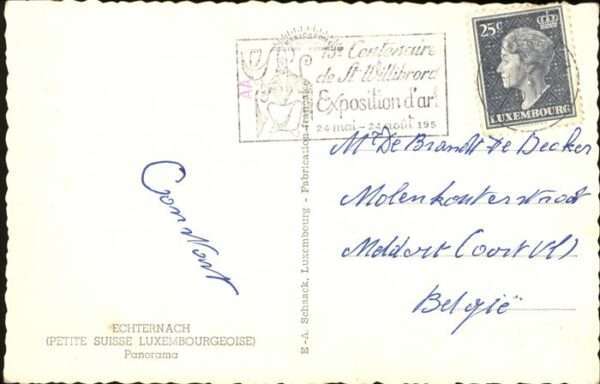 13e Centenaire
de St Willibrord
Exposition d'art
24 mai - 24 août 195
25c
LUXEMBOURG
Mr De Brandt-De Decker
Molenkouterstraat
Meldert (Oost Vl)
België
Constant
E.-A. Schaack, Luxembourg - Fabrication française
ECHTERNACH
(PETITE SUISSE LUXEMBOURGEOISE)
Panorama